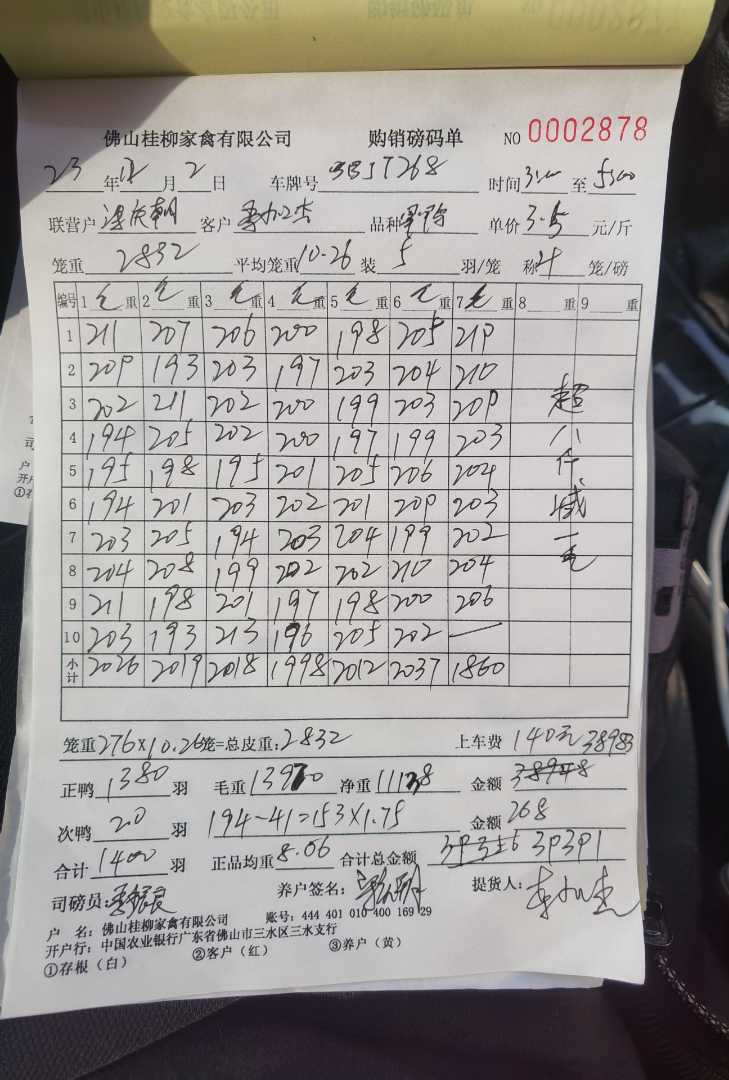 佛山桂柳家禽有限公司 购销磅码单 NO 0002878
23 年 12 月 2 日 车牌号 3BJT268 时间 3:00 至 5:00
联营户 客户 品种 单价 3.5 元/斤
笼重 2832 平均笼重 10.26 装 5 羽/笼 称 4 笼/磅
编号 1 毛 重 2 毛 重 3 毛 重 4 毛 重 5 毛 重 6 毛 重 7 毛 重 8 重 9 重
1 211 207 206 200 198 205 219
2 209 193 203 197 203 204 210
3 202 211 202 200 199 203 209
4 194 205 202 200 197 199 203
5 195 198 195 201 205 206 204
6 194 201 203 202 201 209 203
7 203 205 194 203 204 199 202
8 204 208 199 202 202 210 204
9 211 198 201 197 198 200 206
10 203 193 213 196 205 202 —
小计 2026 2019 2018 1998 2012 2037 1860
超八仟减一毛
笼重 276×10.26 笼=总皮重: 2832 上车费 140元 38983
正鸭 1380 羽 毛重 13970 净重 11138 金额 38948
次鸭 20 羽 194-41=153×1.75 金额 268
合计 1400 羽 正品均重 8.06 合计总金额 39391
司磅员: 养户签名: 提货人:
户 名: 佛山桂柳家禽有限公司 账号: 444 401 010 400 169 29
开户行: 中国农业银行广东省佛山市三水区三水支行
①存根（白） ②客户（红） ③养户（黄）